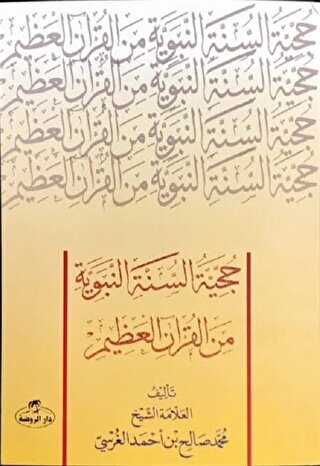 حجية السنة النبوية من القرآن العظيم
حجية السنة النبوية من القرآن العظيم
حجية السنة النبوية من القرآن العظيم
حجية السنة النبوية من القرآن العظيم
حُجِّيَّةُ السُّنَّةِ النَّبَوِيَّةِ
مِنَ القُرآنِ العَظِيْمِ
تَأليْفُ
العَلّامَة الشَّيْخ
مُحَمَّد صَالِح بْن أحْمَد الغُرْسِيّ
دار الروضة